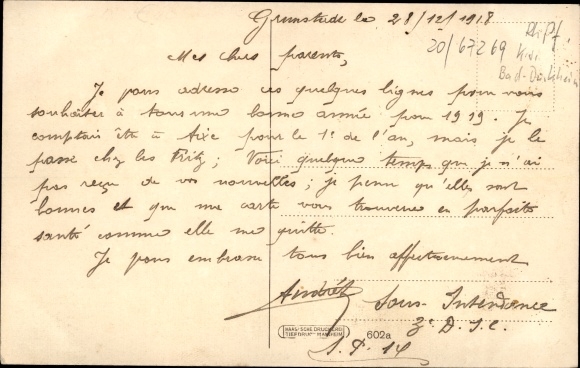 Grunstadt le 28/12/1918
Rh.Pf.
20/67269 Krs.
Bad-Dürkheim
Mes chers parents,
Je vous adresse ces quelques lignes pour vous
souhaiter à tous une bonne année pour 1919. Je
comptais être à pour le 1er de l'an, mais je le
passe chez les Fritz; Voici quelque temps que je n'ai
pas reçu de vos nouvelles; je pense qu'elles sont
bonnes et que ma carte vous trouvera en parfaite
santé comme elle me quitte.
Je vous embrasse tous bien affectueusement
André
Sous-Intendance
D.I.C.
S.P. 14
TIEFDRUCK MANNHEIM
602a